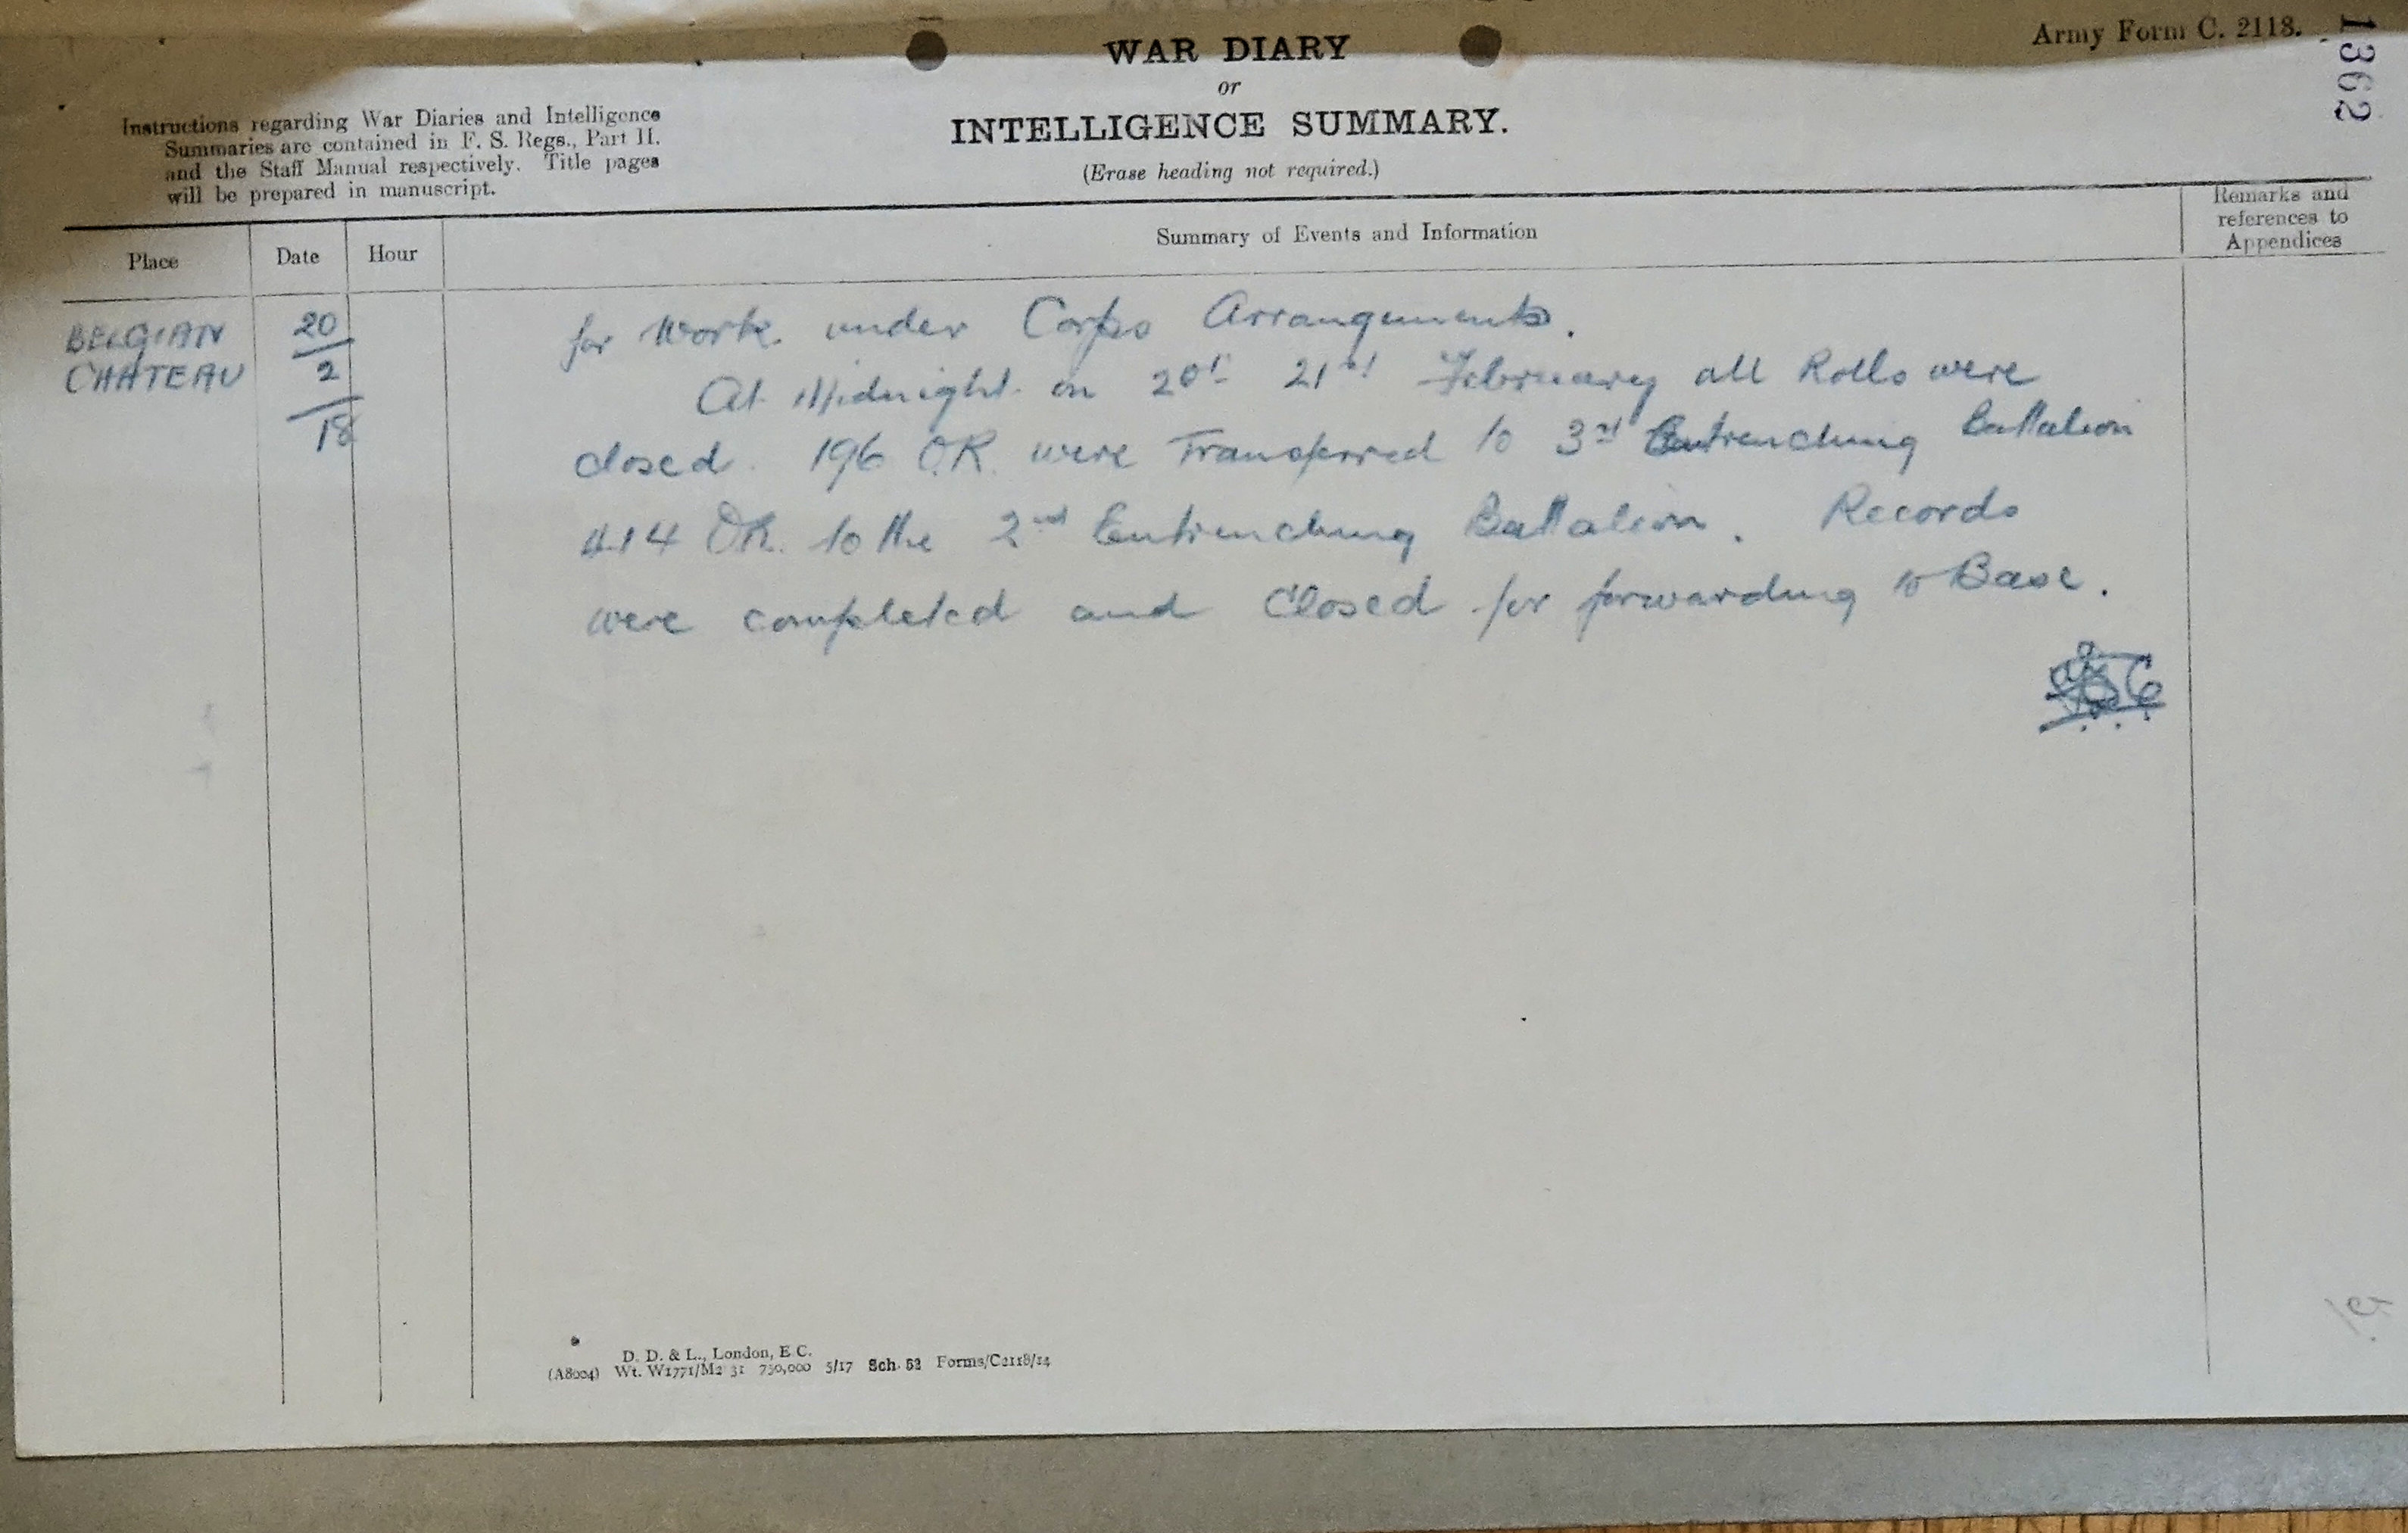 Army Form C. 2118.
1362
WAR DIARY
or
INTELLIGENCE SUMMARY.
(Erase heading not required.)
Instructions regarding War Diaries and Intelligence
Summaries are contained in F. S. Regs., Part II.
and the Staff Manual respectively. Title pages
will be prepared in manuscript.
Place
Date
Hour
Summary of Events and Information
Remarks and
references to
Appendices
BELGIAN
CHATEAU
20
2
18
for Work under Corps Arrangements.
At Midnight on 20th 21st February all Rolls were
closed. 196 O.R. were Transferred to 3rd Entrenching Battalion
414 OR. to the 2nd Entrenching Battalion. Records
were completed and Closed for forwarding to Base.
D. D. & L., London, E.C.
(A8004) Wt. W1771/M2 31 750,000 5/17 Sch. 52 Forms/C2118/14